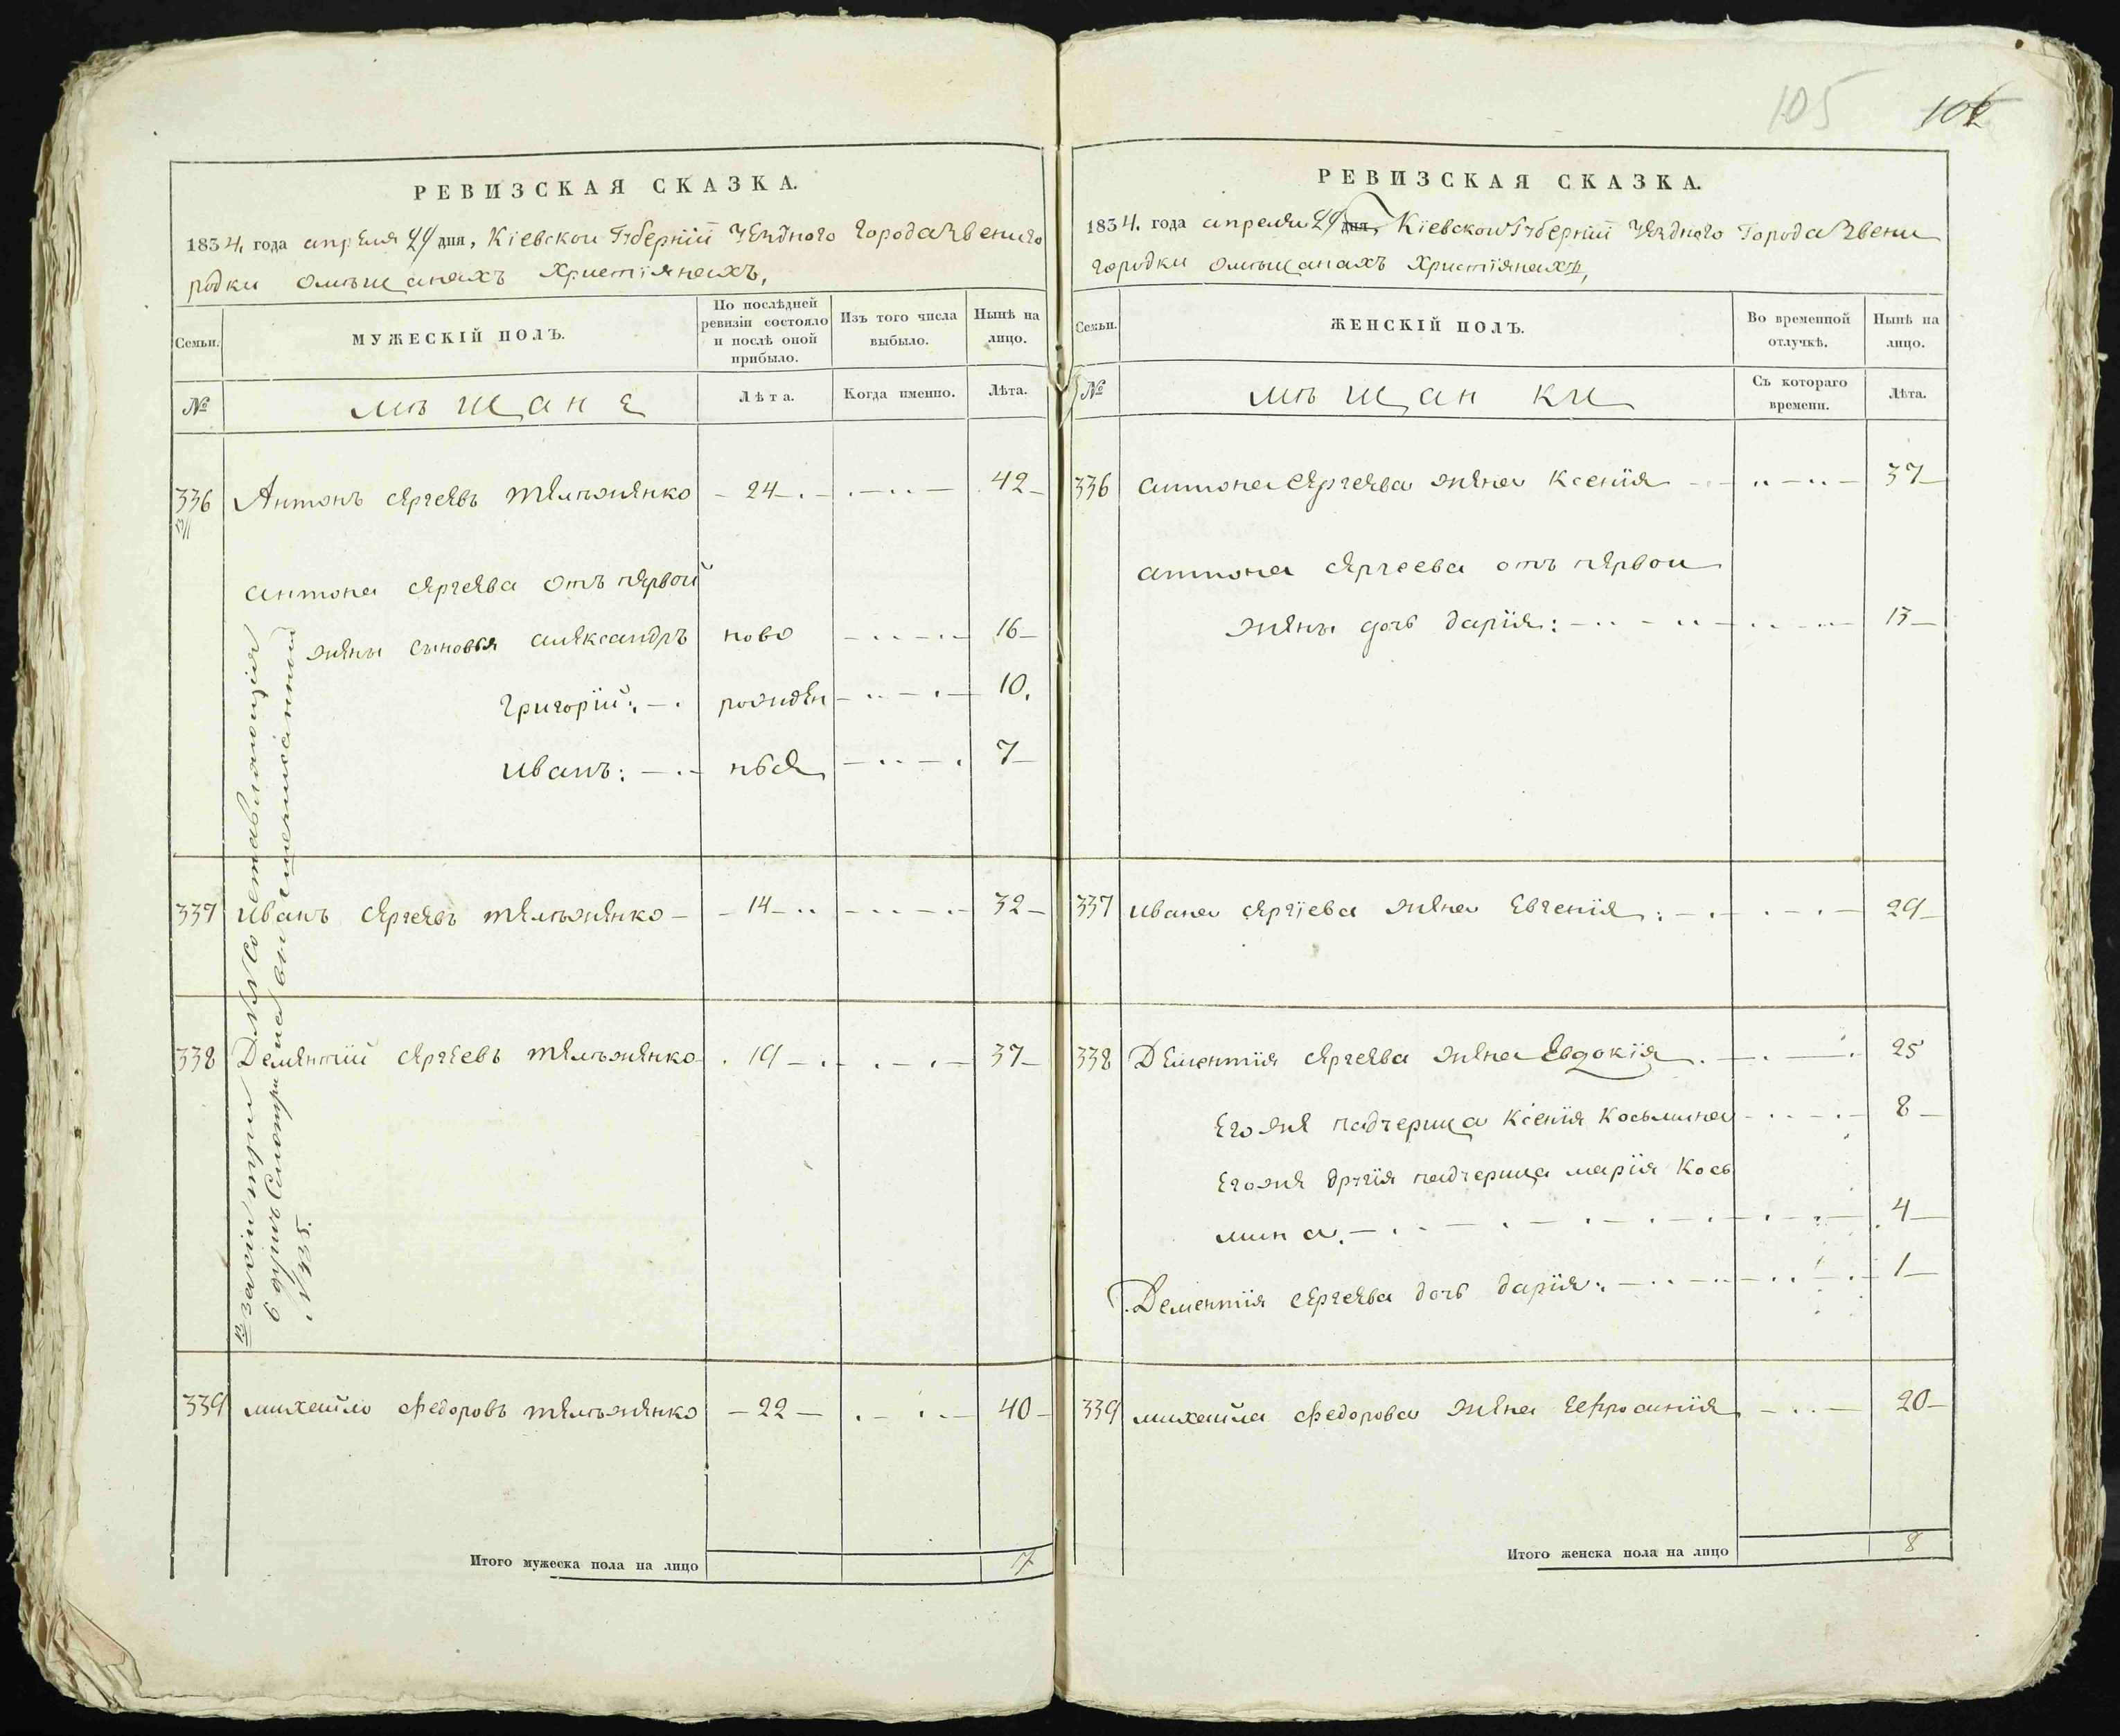 105
РЕВИЗСКАЯ СКАЗКА.
1834. года апреля 24 дня, Кіевской Губерніи Уезднаго Города Звениго
родки Омѣщанахъ Христіянахъ,
Семьи.
МУЖЕСКІЙ ПОЛЪ.
По послѣдней
ревизіи состояло
и послѣ оной
прибыло.
Изъ того числа
выбыло.
Нынѣ на
лицо.
№
мѣщане
Лѣта.
Когда именно.
Лѣта.
336 Антонъ Сергеевъ 24 42
антона Сергеева отъ первой
жены сыновья александръ ново 16
Григорій рожден 10.
иванъ: ныя 7
337 иванъ Сергеевъ 14 32
338 Дементій Сергеевъ 19 37
339 михайло Федоровъ 22 40
души Смотри
№ 335.
Итого мужеска пола на лицо 7
РЕВИЗСКАЯ СКАЗКА.
1834. года апреля 24 дня, Кіевской Губерніи Уезднаго Города Звени
городки Омѣщанахъ Христіянахъ,
Семьи.
ЖЕНСКІЙ ПОЛЪ.
Во временной
отлучкѣ.
Нынѣ на
лицо.
№
мѣщанки
Съ котораго
времени.
Лѣта.
336 антона Сергеева жена Ксенія 37
антона Сергеева отъ первой
жены дочь дарія: 13
337 ивана Сергіева жена Евгенія: 29
338 Дементія Сергеева жена Евдокія 25
Егоже падчерица Ксенія Косьмина 8
Егоже другія падчерица марія Кось
мина. 4
Дементія Сергеева дочь дарія: 1
339 михайла Федорова жена Ефросинія 20
Итого женска пола на лицо 8